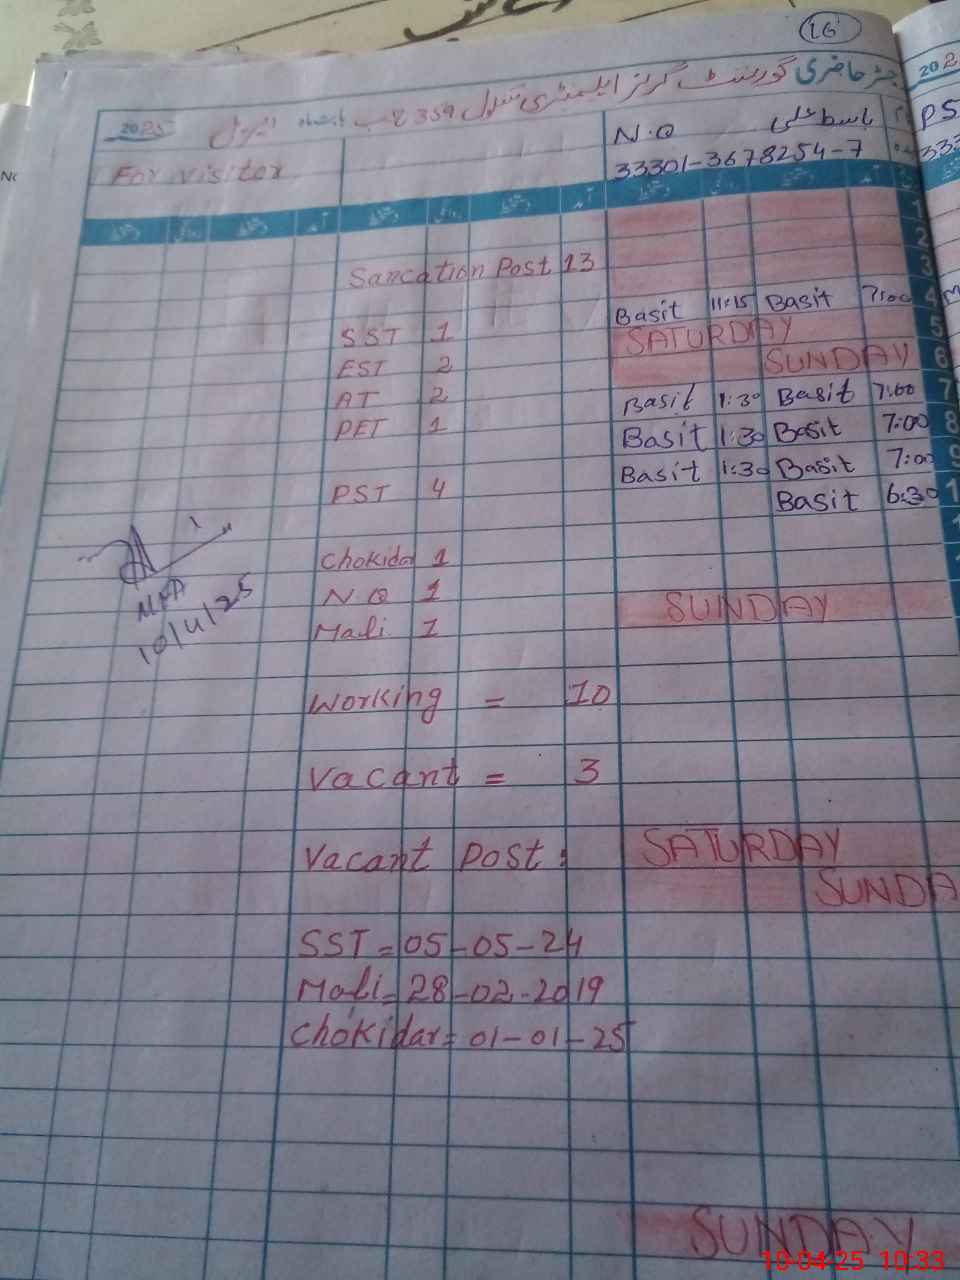 16
رجسٹر حاضری گورنمنٹ گرلز ایلیمنٹری سکول 359 ج ب بابت ماہ اپریل 2025
202
N.Q باسط علی
PS
For visitor
33301-3678254-7
333
1
2
Sancation Post 13
3
Basit 11:15 Basit 7:00 4
SST 1 SATURDAY 5
EST 2 SUNDAY 6
AT 2 Basit 1:30 Basit 7:00 7
PET 1 Basit 1:30 Basit 7:00 8
Basit 1:30 Basit 7:00 9
PST 4 Basit 6:30 1
Chokidar 1
N Q 1 SUNDAY
Mali 1
10/4/25
Working = 10
Vacant = 3
Vacant Post: SATURDAY
SUNDA
SST = 05-05-24
Mali = 28-02-2019
Chokidar = 01-01-25
SUNDAY
10-04-25 10:33